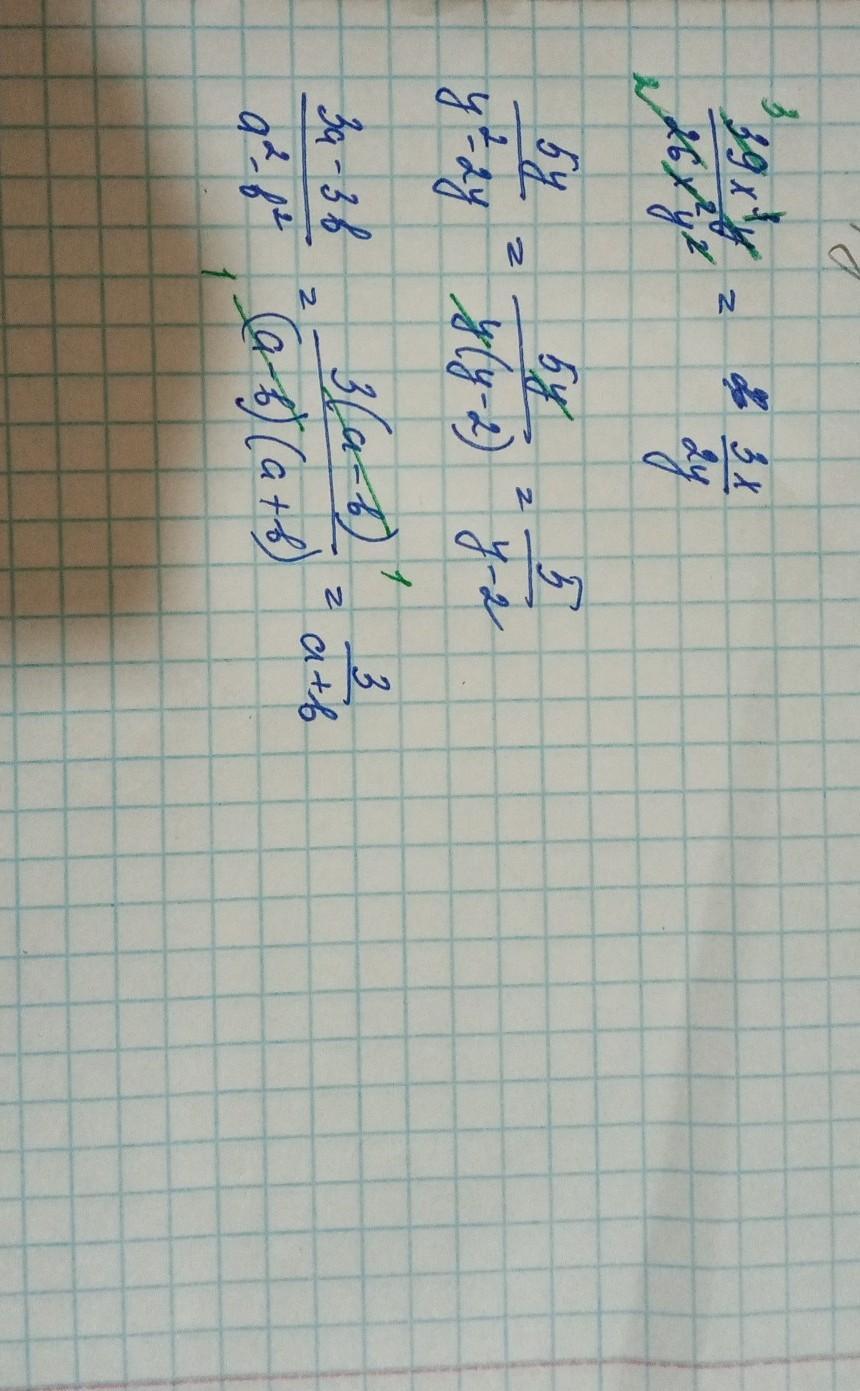 39x³y / 26x²y² = 3x / 2y
5y / y² - 2y = 5y / y(y-2) = 5 / y-2
3a - 3b / a² - b² = 3(a-b) / (a-b)(a+b) = 3 / a+b